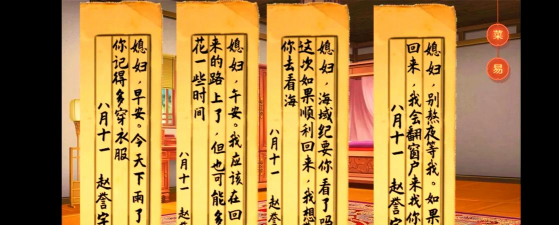 媳妇，早安。今天下雨了
你记得多穿衣服
八月十一 赵誉字
媳妇，午安。我应该在回
来的路上了，但也可能多
花一些时间
八月十一 赵誉字
媳妇，海域纪要你看了吗
这次如果顺利回来，我想
你去看海
八月十一 赵誉字
媳妇，别熬夜等我。如果
回来，我会翻窗户来找你
八月十一 赵誉字
菜
易